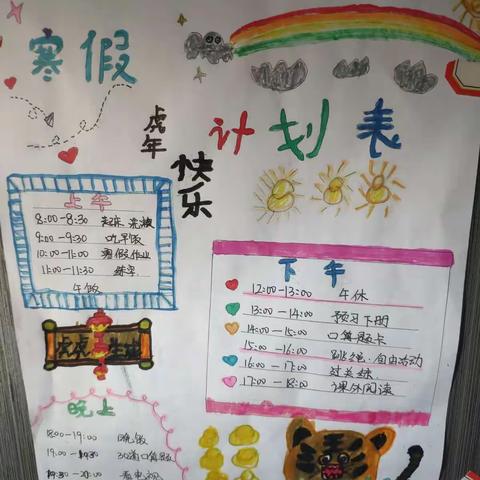 寒假
虎年
快乐
计划表
上午
8:00-8:30 起床 洗漱
9:00-9:30 吃早饭
10:00-11:00 寒假作业
11:00-11:30 练字
午饭
下午
12:00-13:00 午休
13:00-14:00 预习下册
14:00-15:00 口算题卡
15:00-16:00 跳绳·自由活动
16:00-17:00 过关练
17:00-18:00 课外阅读
虎虎生
晚上
18:00-19:00 晚饭
19:00-19:30 30道口算题
19:30-20:00 看电视